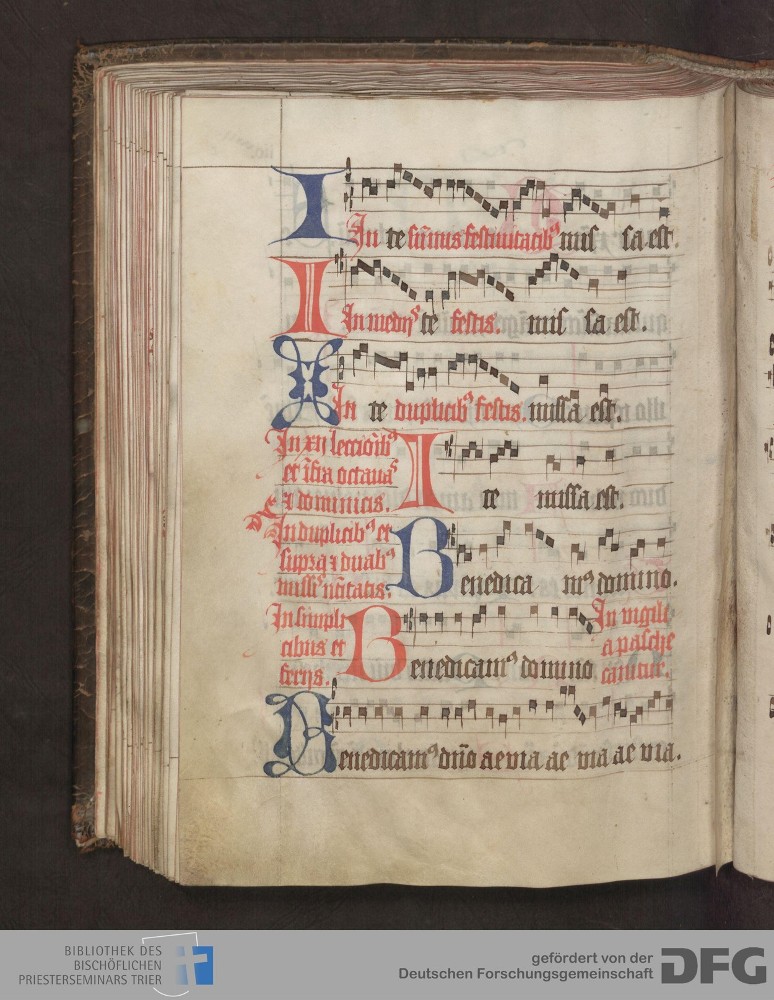 I In te sūmis festiuitatibꝰ mis sa est.
I In medijs te festis. mis sa est.
I In te duplicibꝰ festis. missa est.
In xij leccōibꝰ
et īfra octauas
et dominicis.
I te missa est.
In duplicibꝰ et
Benedica mꝰ domino.
In simpli
cibus et
ferijs.
Benedicamꝰ domino
In vigili
a pasche
canitur.
Benedicamꝰ dn̄o aeuia ae uia ae uia.
BIBLIOTHEK DES
BISCHÖFLICHEN
PRIESTERSEMINARS TRIER
gefördert von der
Deutschen Forschungsgemeinschaft
DFG